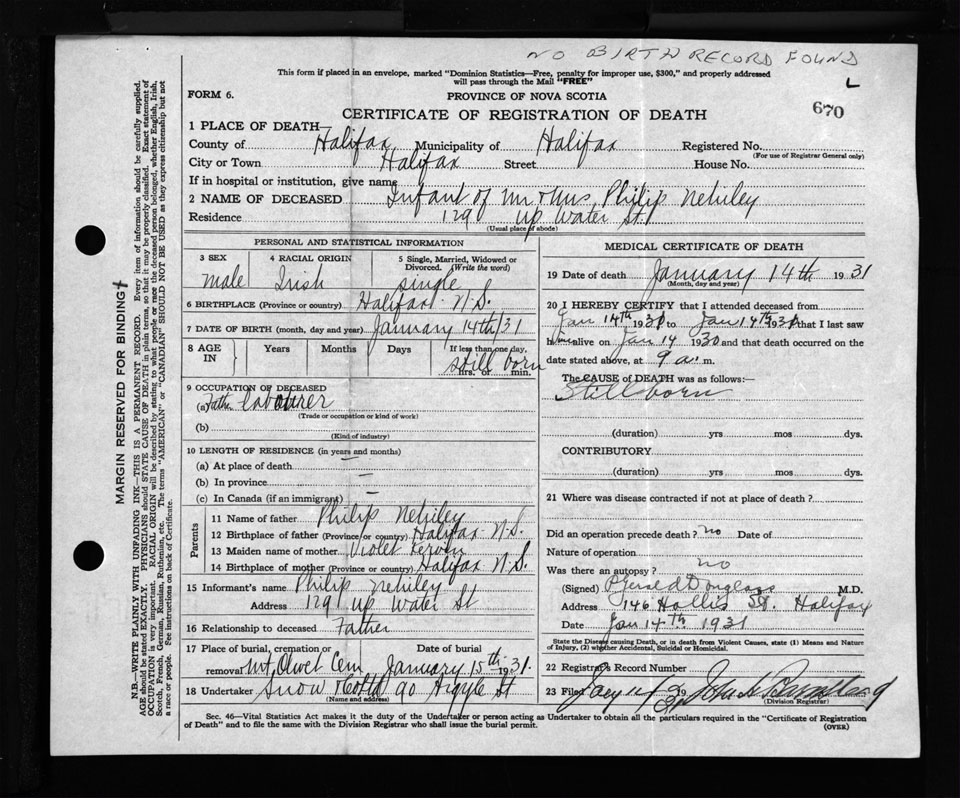 NO BIRTH RECORD FOUND
L
This form if placed in an envelope, marked "Dominion Statistics—Free, penalty for improper use, $300," and properly addressed
will pass through the Mail "FREE"
FORM 6.
PROVINCE OF NOVA SCOTIA
670
CERTIFICATE OF REGISTRATION OF DEATH
1 PLACE OF DEATH—
County of Halifax Municipality of Halifax Registered No.
(For use of Registrar General only)
City or Town Halifax Street House No.
If in hospital or institution, give name
2 NAME OF DECEASED Infant of Mr & Mrs Philip Nehiley
Residence 129 up Water St
(Usual place of abode)
PERSONAL AND STATISTICAL INFORMATION
3 SEX 4 RACIAL ORIGIN 5 Single, Married, Widowed or
Divorced. (Write the word)
male Irish single
6 BIRTHPLACE (Province or country) Halifax N.S.
7 DATE OF BIRTH (month, day and year) January 14th/31
8 AGE IN Years Months Days If less than one day,
still born
hrs. or min.
9 OCCUPATION OF DECEASED
(a) Father labourer
(Trade or occupation or kind of work)
(b)
(Kind of industry)
10 LENGTH OF RESIDENCE (in years and months)
(a) At place of death —
(b) In province —
(c) In Canada (if an immigrant) —
Parents
11 Name of father Philip Nehiley
12 Birthplace of father (Province or country) Halifax N.S.
13 Maiden name of mother Violet Kervin
14 Birthplace of mother (Province or country) Halifax N.S.
15 Informant's name Philip Nehiley
Address 129 up Water St
16 Relationship to deceased Father
17 Place of burial, cremation or Date of burial
removal Mt Olivet Cem January 15th 1931
18 Undertaker Snow & Co Ltd 90 Argyle St
(Name and address)
MEDICAL CERTIFICATE OF DEATH
19 Date of death January 14th 1931
(Month, day and year)
20 I HEREBY CERTIFY that I attended deceased from
Jan 14th 1930 to Jan 14th 1930 that I last saw
him alive on Jan 14 1930 and that death occurred on the
date stated above, at 9 a. m.
The CAUSE OF DEATH was as follows:—
Still born
(duration) yrs mos dys.
CONTRIBUTORY
(duration) yrs mos dys.
21 Where was disease contracted if not at place of death?
Did an operation precede death? no Date of
Nature of operation
Was there an autopsy? no
(Signed) Gerald Douglass M.D.
Address 146 Hollis St. Halifax
Date Jan 14th 1931
State the Disease causing Death, or in death from Violent Causes, state (1) Means and Nature
of Injury, (2) whether Accidental, Suicidal or Homicidal.
22 Registrar's Record Number
23 Filed 19
(Division Registrar)
Sec. 46—Vital Statistics Act makes it the duty of the Undertaker or person acting as Undertaker to obtain all the particulars required in the "Certificate of Registration
of Death" and to file the same with the Division Registrar who shall issue the burial permit.
(OVER)
MARGIN RESERVED FOR BINDING
N.B.—WRITE PLAINLY WITH UNFADING INK—THIS IS A PERMANENT RECORD. Every item of information should be carefully supplied.
AGE should be stated EXACTLY. PHYSICIANS should STATE CAUSE OF DEATH in plain terms, so that it may be properly classified. Exact statement of
OCCUPATION is very important. RACIAL ORIGIN will be described by stating to what people or race the deceased person belonged, whether English, Irish,
Scotch, French, German, Russian, Ruthenian, etc. The terms "AMERICAN" or "CANADIAN" SHOULD NOT BE USED as they express citizenship but not
a race or people. See instructions on back of Certificate.